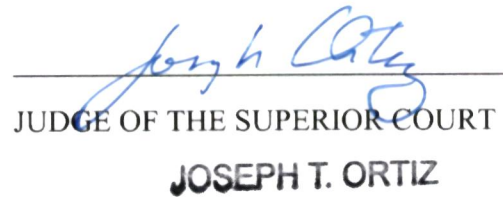 Joseph Ortiz
JUDGE OF THE SUPERIOR COURT
JOSEPH T. ORTIZ